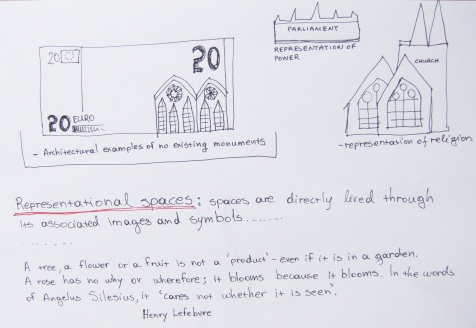 20
20
20 EURO
- Architectural examples of no existing monuments
PARLIAMENT
REPRESENTATION OF
POWER
CHURCH
- representation of religion
Representational spaces: spaces are directly lived through
its associated images and symbols.........
.......
A tree, a flower or a fruit is not a 'product' - even if it is in a garden.
A rose has no why or wherefore; it blooms because it blooms. In the words
of Angelus Silesius, it 'cares not whether it is seen'.
Henry Lefebvre